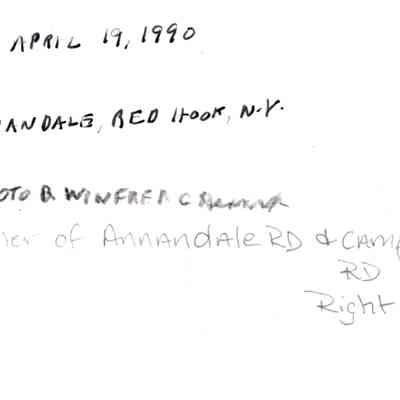 APRIL 19, 1990
ANDALE, RED HOOK, N.Y.
OTO B WINFRED C
ner of ANNANDALE RD & CAMP
RD
Right